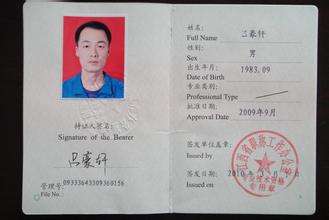 持证人签名:
Signature of the Bearer
吕豪轩
管理号:
File No.
姓名:
吕豪轩
Full Name
性别:
男
Sex
出生年月:
1983.09
Date of Birth
专业类别:
Professional Type
批准日期:
2009年9月
Approval Date
签发单位盖章:
Issued by
签发日期:
2010年
Issued on